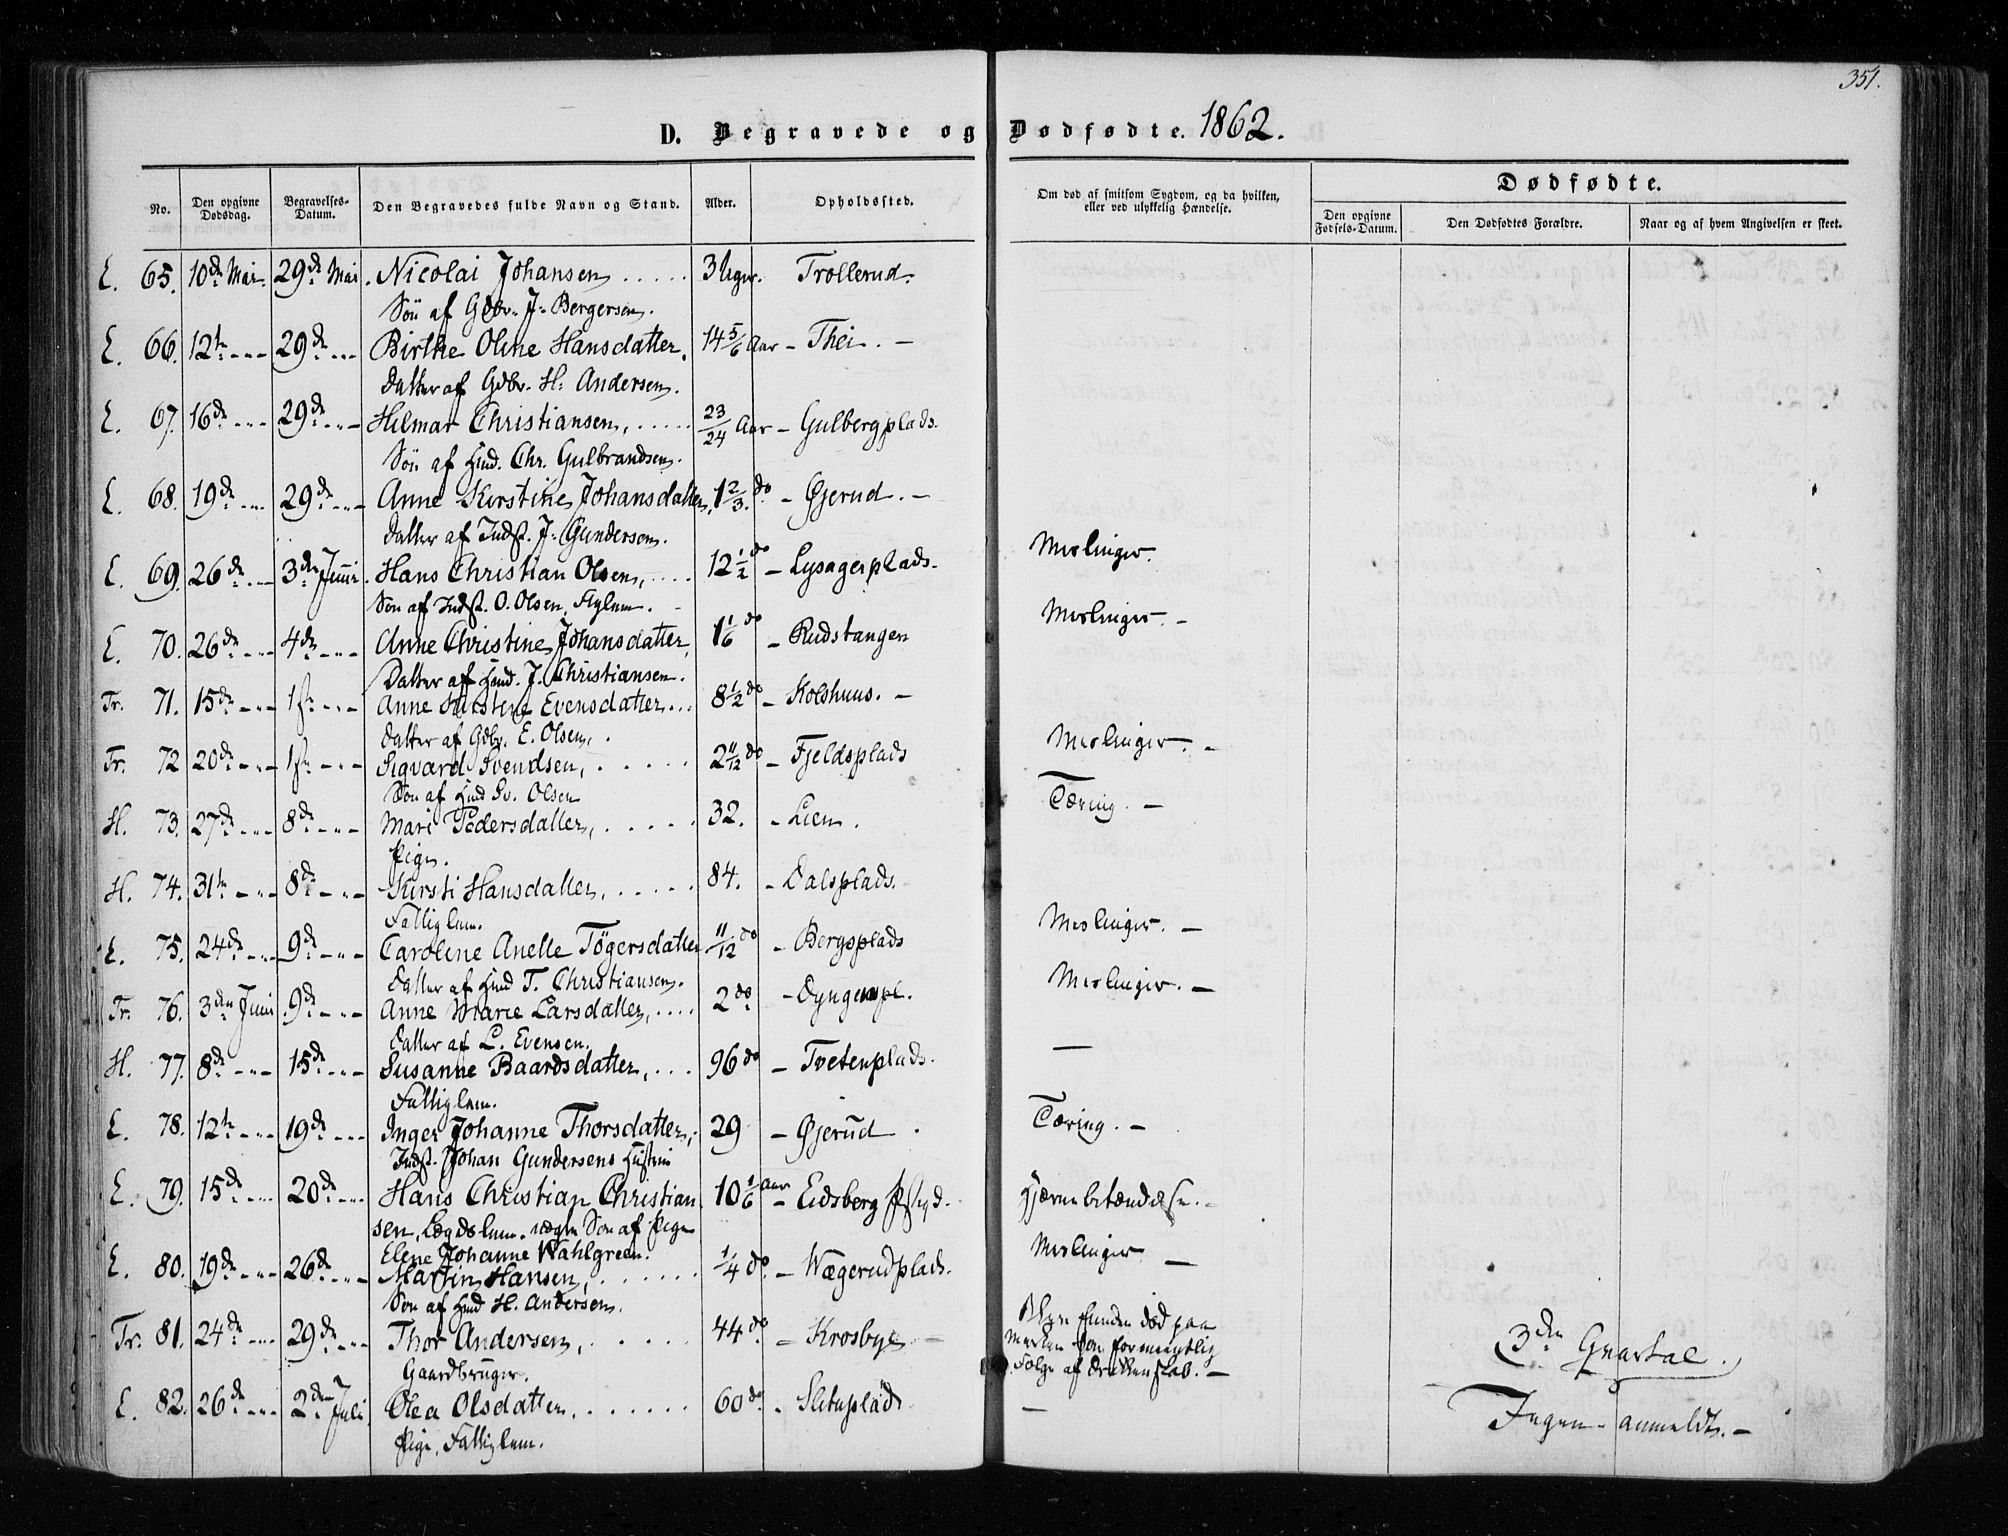 351.
D. Begravede og Dødfødte. 1862.
No. Den opgivne Dødsdag. Begravelses-Datum. Den Begravedes fulde Navn og Stand. Alder. Opholdssted. Om død af smitsom Sygdom, og da hvilken, eller ved ulykkelig Hændelse. Dødfødte.
Den opgivne Fødsels-Datum. Den Dødfødtes Forældre. Naar og af hvem Angivelsen er skeet.
E. 65. 10de Mai. 29de Mai. Nicolai Johansen 3 Uger. Trollerud.
Søn af Gdbr. J. Bergersen.
E. 66. 12te - " - 29de - " - Birthe Oline Hansdatter. 14 5/6 Aar - Thei. -
Datter af Gdbr. H. Andersen.
E. 67. 16de - " - 29de - " - Hilmar Christiansen, 23/24 Aar - Gulbergplads.
Søn af Huusm. Chr. Gulbrandsen.
E. 68. 19de - " - 29de - " - Anne Kirstine Johansdatter, 1 2/3 do - Gjerud. -
Datter af Indst. J. Gundersen.
E. 69. 26de - " - 3de Juni. Hans Christian Olsen, 12 1/2 do - Lysagerplads. Meslinger.
Søn af Indst. O. Olsen,
E. 70. 26de - " - 4de - " - Anne Christine Johansdatter, 1 1/6 do - Rudstangen Meslinger. -
Datter af Huusm. J. Christiansen.
Tr. 71. 15de - " - 1ste - " - Anne Kirstine Evensdatter 8 1/2 do - Kolshuus. -
Datter af Gdbr. E. Olsen.
Tr. 72 20de - " - 1ste - " - Sigvard Svendsen, 2 11/12 do - Fjeldsplads Meslinger. -
Søn af Huusm. Sv. Olsen
H. 73. 27de - " - 8de - " - Mari Pedersdatter, 32. - Lien. Tæring. -
Pige.
H. 74. 31te - " - 8de - " - Kirsti Hansdatter, 84. - Dalsplads.
Fattiglem.
E. 75. 24de - " - 9de - " - Caroline Anette Tøgersdatter 11/12 do - Bergsplads Meslinger. -
Datter af Huusm. T. Christiansen.
Tr. 76. 3den Juni 9de - " - Anne Marie Larsdatter, 2 do - Dyngenpl. Meslinger. -
Datter af L. Evensen.
H. 77. 8de - " - 15de - " - Susanne Baardsdatter, 96 do - Tvetenplads. -
Fattiglem.
E. 78. 12te - " - 19de - " - Inger Johanne Thorsdatter, 29 - Gjerud. Tæring. -
Indst. Johan Gundersens Hustru
E. 79. 15de - " - 20de - " - Hans Christian Christian- 10 1/6 Aar - Eidsberg Hjernebetændelse. -
sen, Lægdslem, uægte Søn af Pige
Elene Johanne Wahlgreen.
E. 80. 19de - " - 26de - " - Martin Hansen, 1/4 do - Wægerudplads. Meslinger -
Søn af Huusm. H. Andersen.
Tr. 81. 24de - " - 29de - " - Thor Andersen, 44 do - Krosbye - funden død paa
Gaardbruger. Marken formeentlig
Følge af Drukkenskab. -
E. 82. 26de - " - 2den Juli Olea Olsdatter, 60 do - Slituplads -
Pige, Fattiglem.
3de Qvartal.
Ingen anmeldt. -